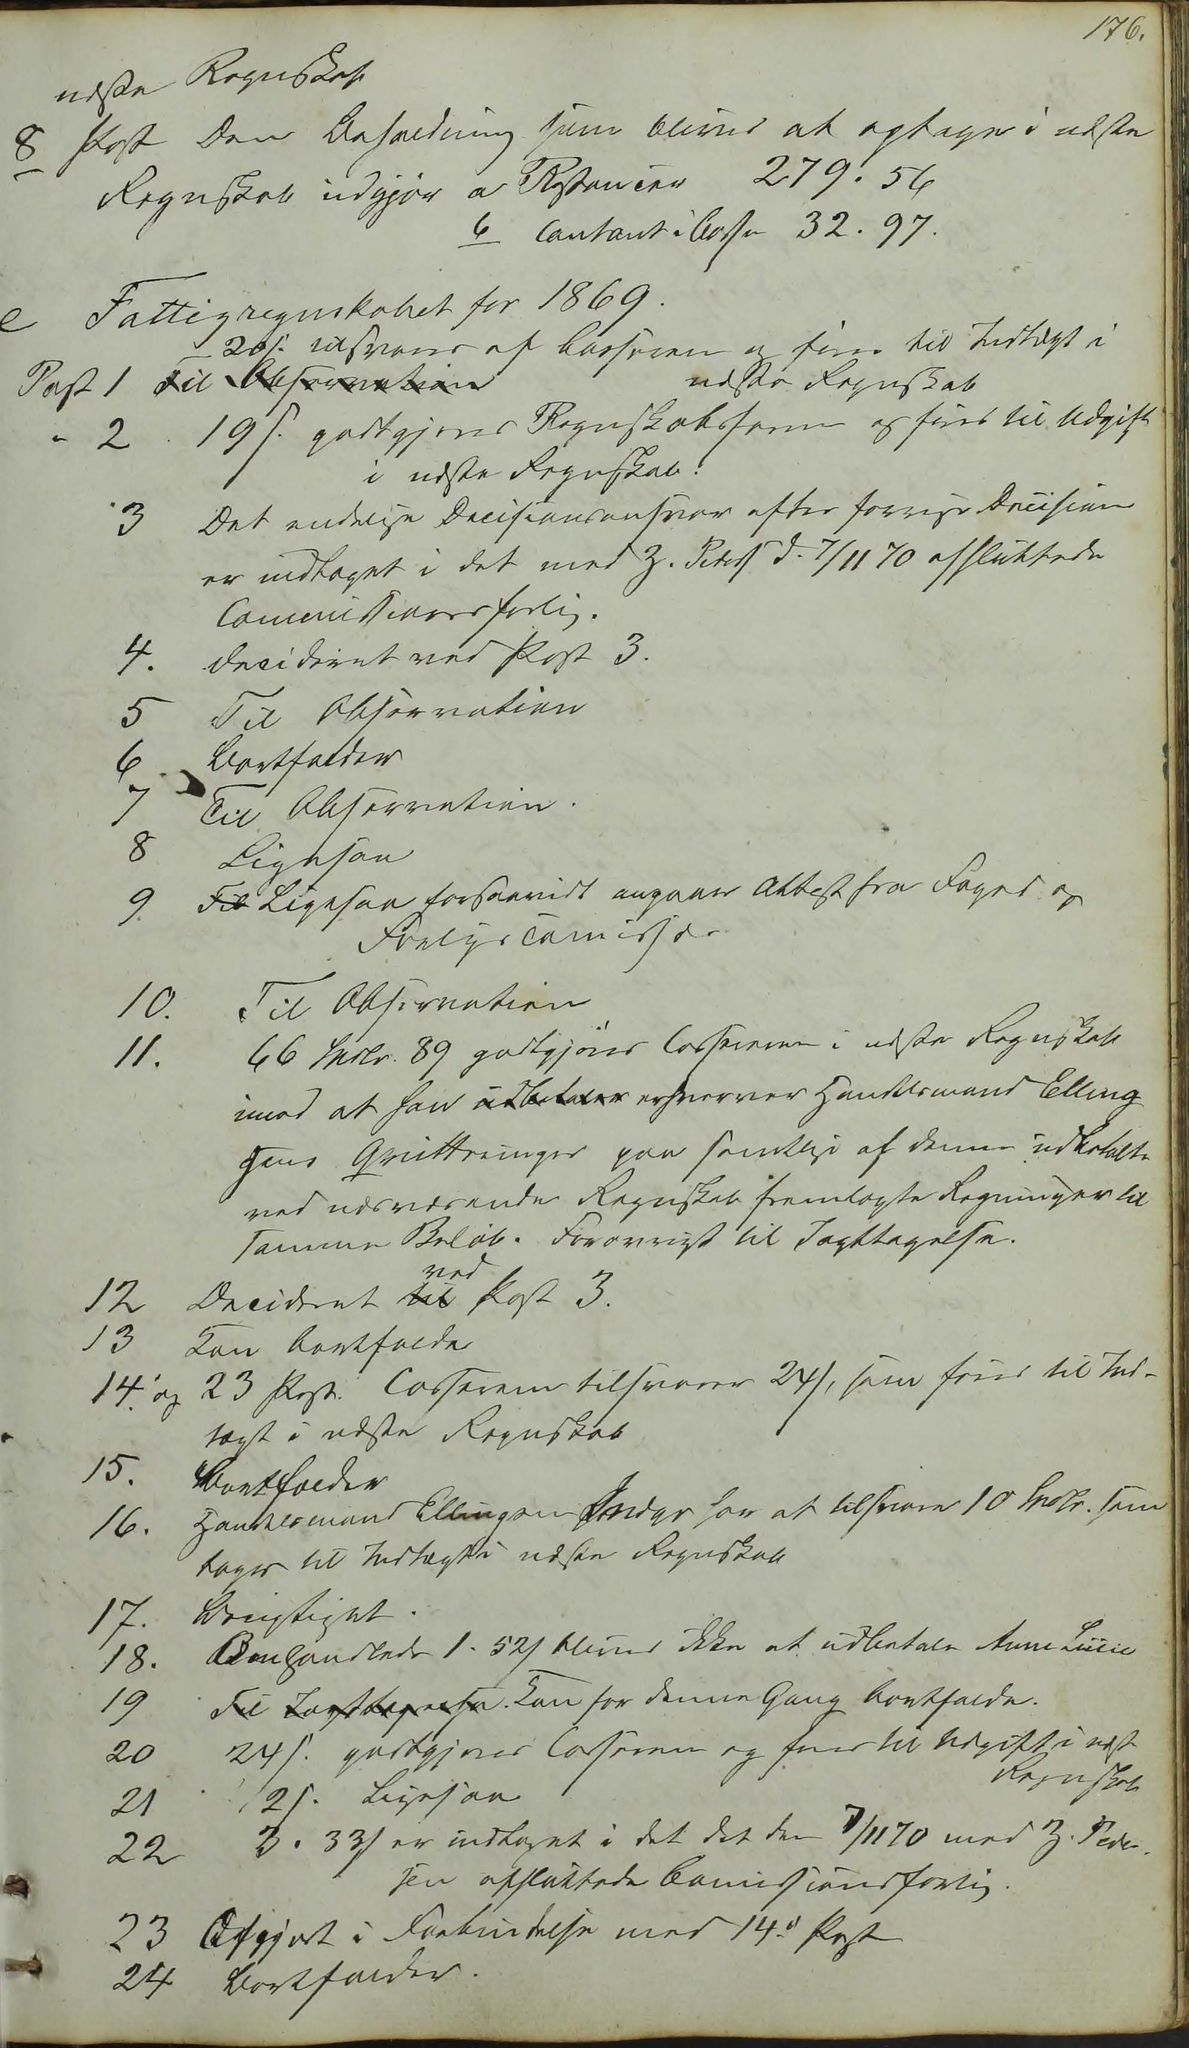 176.
næste Regnskab
8 Post Den Beholdning som bliver at optage i næste
Regnskab udgjør a Restancer 279. 56
b Contant i Casse 32. 97.
e Fattigregnskabet for 1869.
20 s. tilsvares af Cassereren og føres til Indtægt i
Post 1 Til Observation næste Regnskab
" 2 19 s. godtgjøres Regnskabsføreren og føres til Udgift
i næste Regnskab.
3 Det endelige Decisionsansvar efter forrige Decision
er indtaget i det med Z. Peders d. 7/11 70 afsluttede
Commissionsforlig.
4. decideret ved Post 3.
5 Til Observation
6 Bortfalder
7 Til Observation.
8 Ligesaa
9 Til Ligesaa forsaavidt angaaer Attest fra Foged og
Forligscomissær
10. Til Observation
11. 66 Spdlr. 89 godtgjøres Cassereren i næste Regnskab
imod at han udbetaler erhverver Handelsmand Elling
sens Qvitteringer paa samtlige af denne udbetalte
ved nærværende Regnskab fremlagte Regninger til
samme Beløb. Forøvrigt til Iagttagelse.
12 Decideret til ved Post 3.
13 Kan bortfalde
14. og 23 Post. Cassereren tilsvarer 24 s, som føres til Ind-
tægt i næste Regnskab
15. Bortfalder
16. Handelsmand Ellingsen har at tilsvare 10 Spdlr. som
tages til Indtægt i næste Regnskab
17. Berigtiget.
18. Omhandlede 1. 52 s bliver ikke at udbetale Anne Lucie
19 Til Iagttagelse Kan for denne Gang bortfalde.
20 24 s. godtgjøres Cassereren og føres til Udgift i næste
Regnskab
21 12 s. Ligesaa
22 3. 33 s er indtaget i det det den 7/11 70 med Z. Peder-
sen afsluttede Comissionsforlig.
23 Afgjort i Forbindelse med 14de Post
24 Bortfalder.